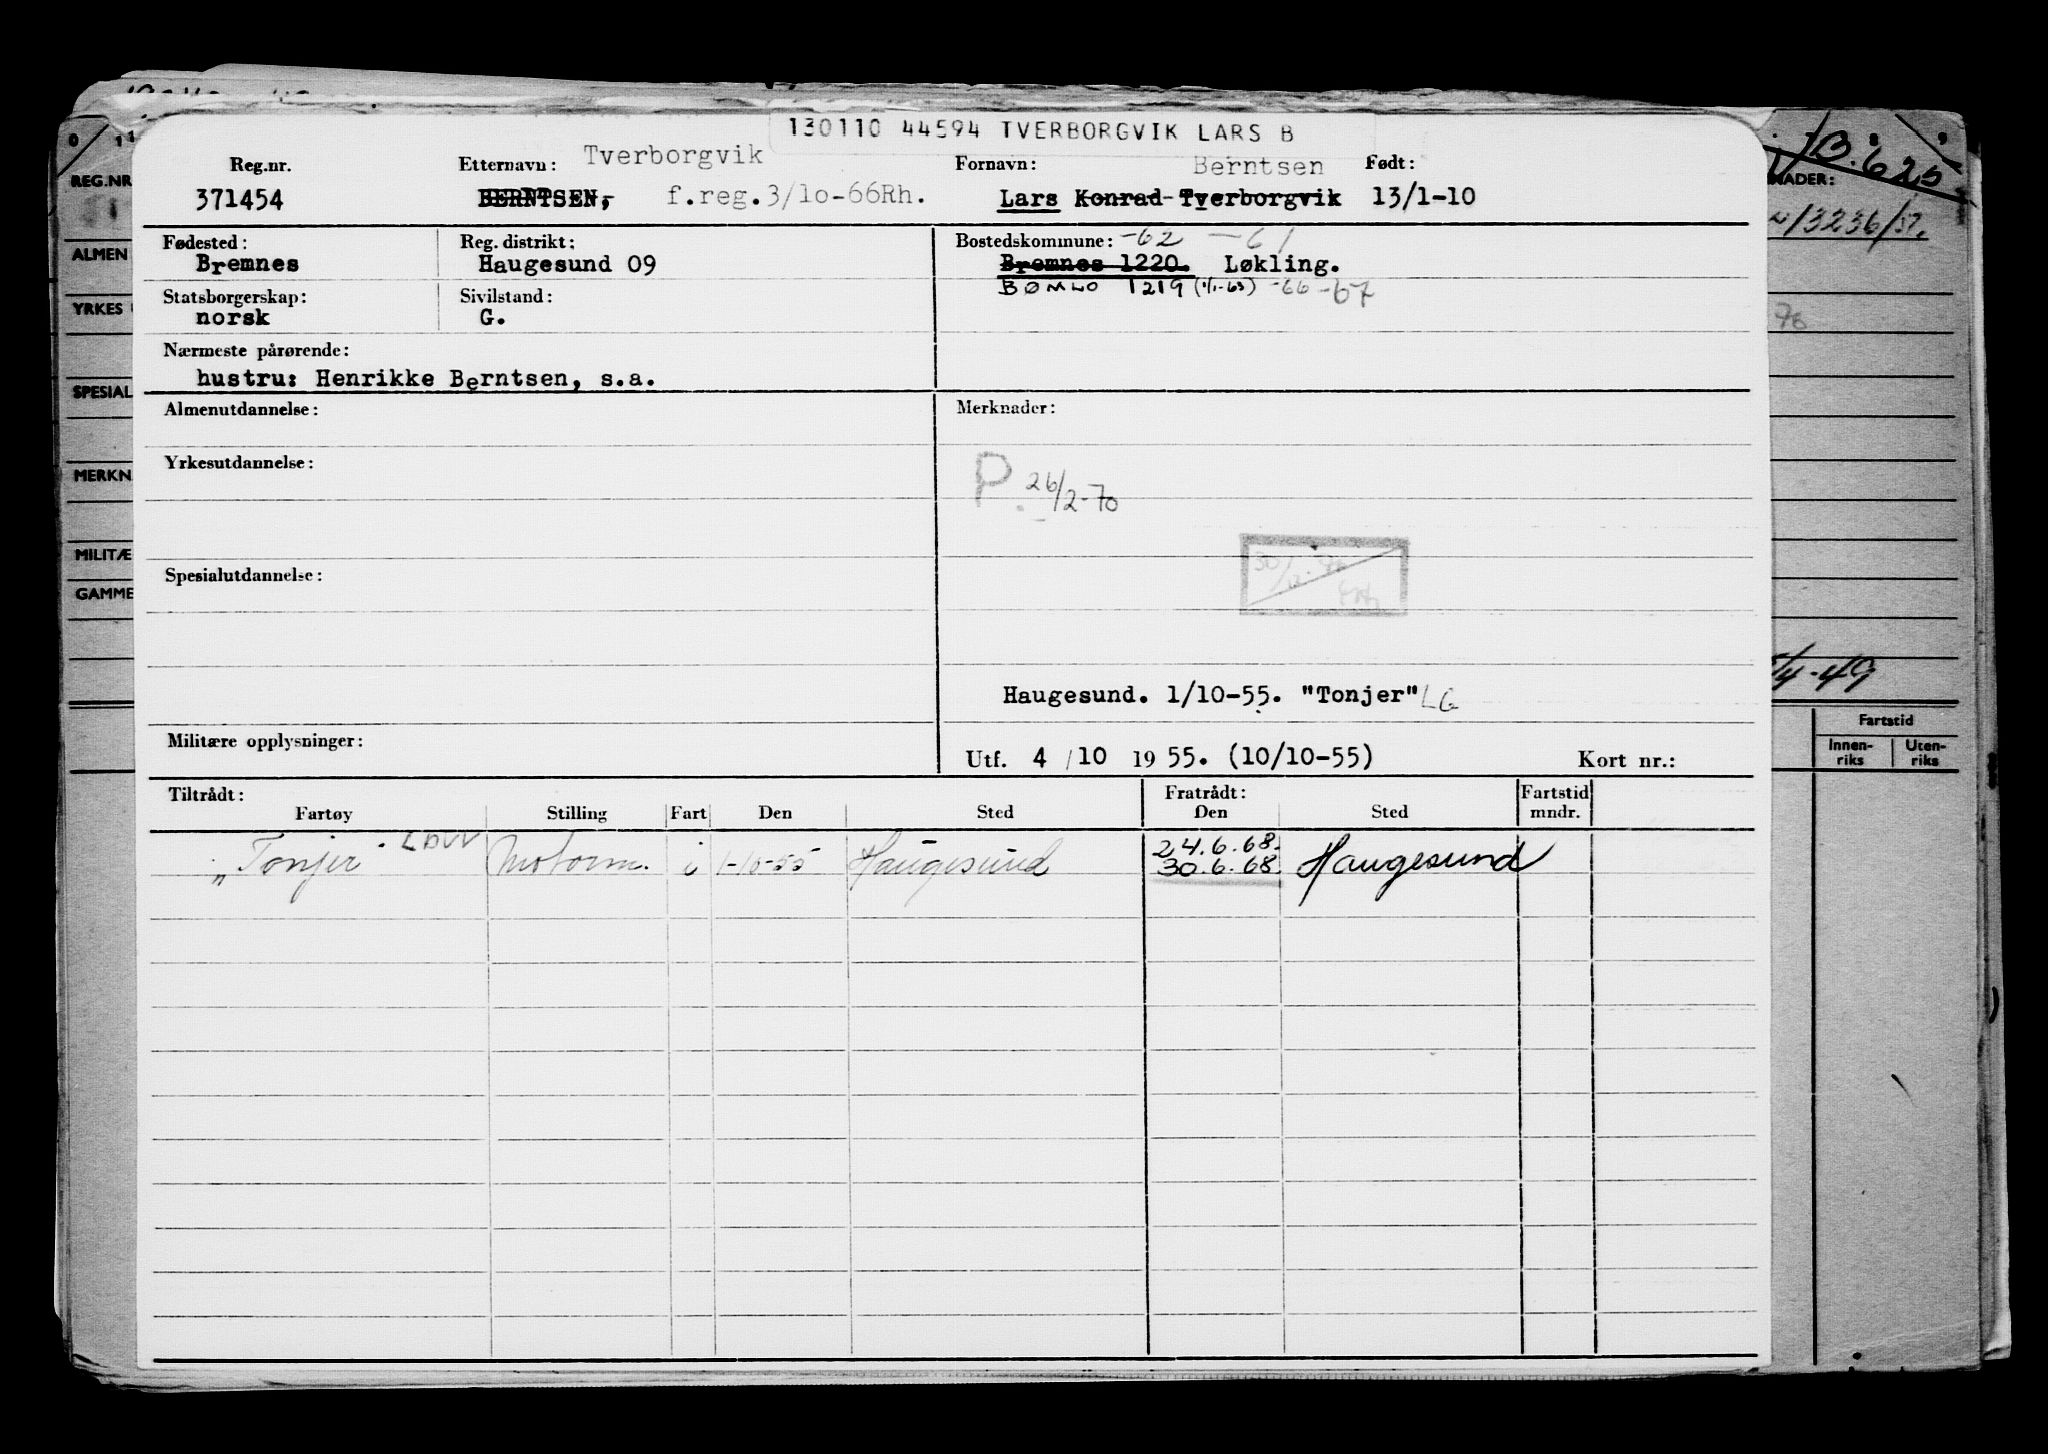 130110 44594 TVERBORGVIK LARS B
Reg.nr. Etternavn: Tverborgvik Fornavn: Berntsen Født:
371454 BERNTSEN, f.reg.3/10-66Rh. Lars Konrad Tverborgvik 13/1-10
Fødested: Reg. distrikt: Bostedskommune: -62 -61
Bremnes Haugesund 09 Bremnes 1220. Løkling.
BØMLO 1219 (1/1-63) -66-67
Statsborgerskap: Sivilstand:
norsk G.
Nærmeste pårørende:
hustru: Henrikke Berntsen, s.a.
Almenutdannelse: Merknader:
Yrkesutdannelse:
P. 26/2-70
Spesialutdannelse:
Haugesund. 1/10-55. "Tonjer" LG
Militære opplysninger:
Utf. 4/10 1955. (10/10-55) Kort nr.:
Tiltrådt: Fratrådt: Fartstid
Fartøy Stilling Fart Den Sted Den Sted mndr.
„Tonjer" Motorm. i 1-10-55 Haugesund 24.6.68. Haugesund
30.6.68.
REG.NR
ALMEN
YRKES
SPESIAL
MERKN
MILITÆ
GAMME
13.625
NADER:
13236/51.
70
/4-49
Fartstid
Innen-riks Uten-riks